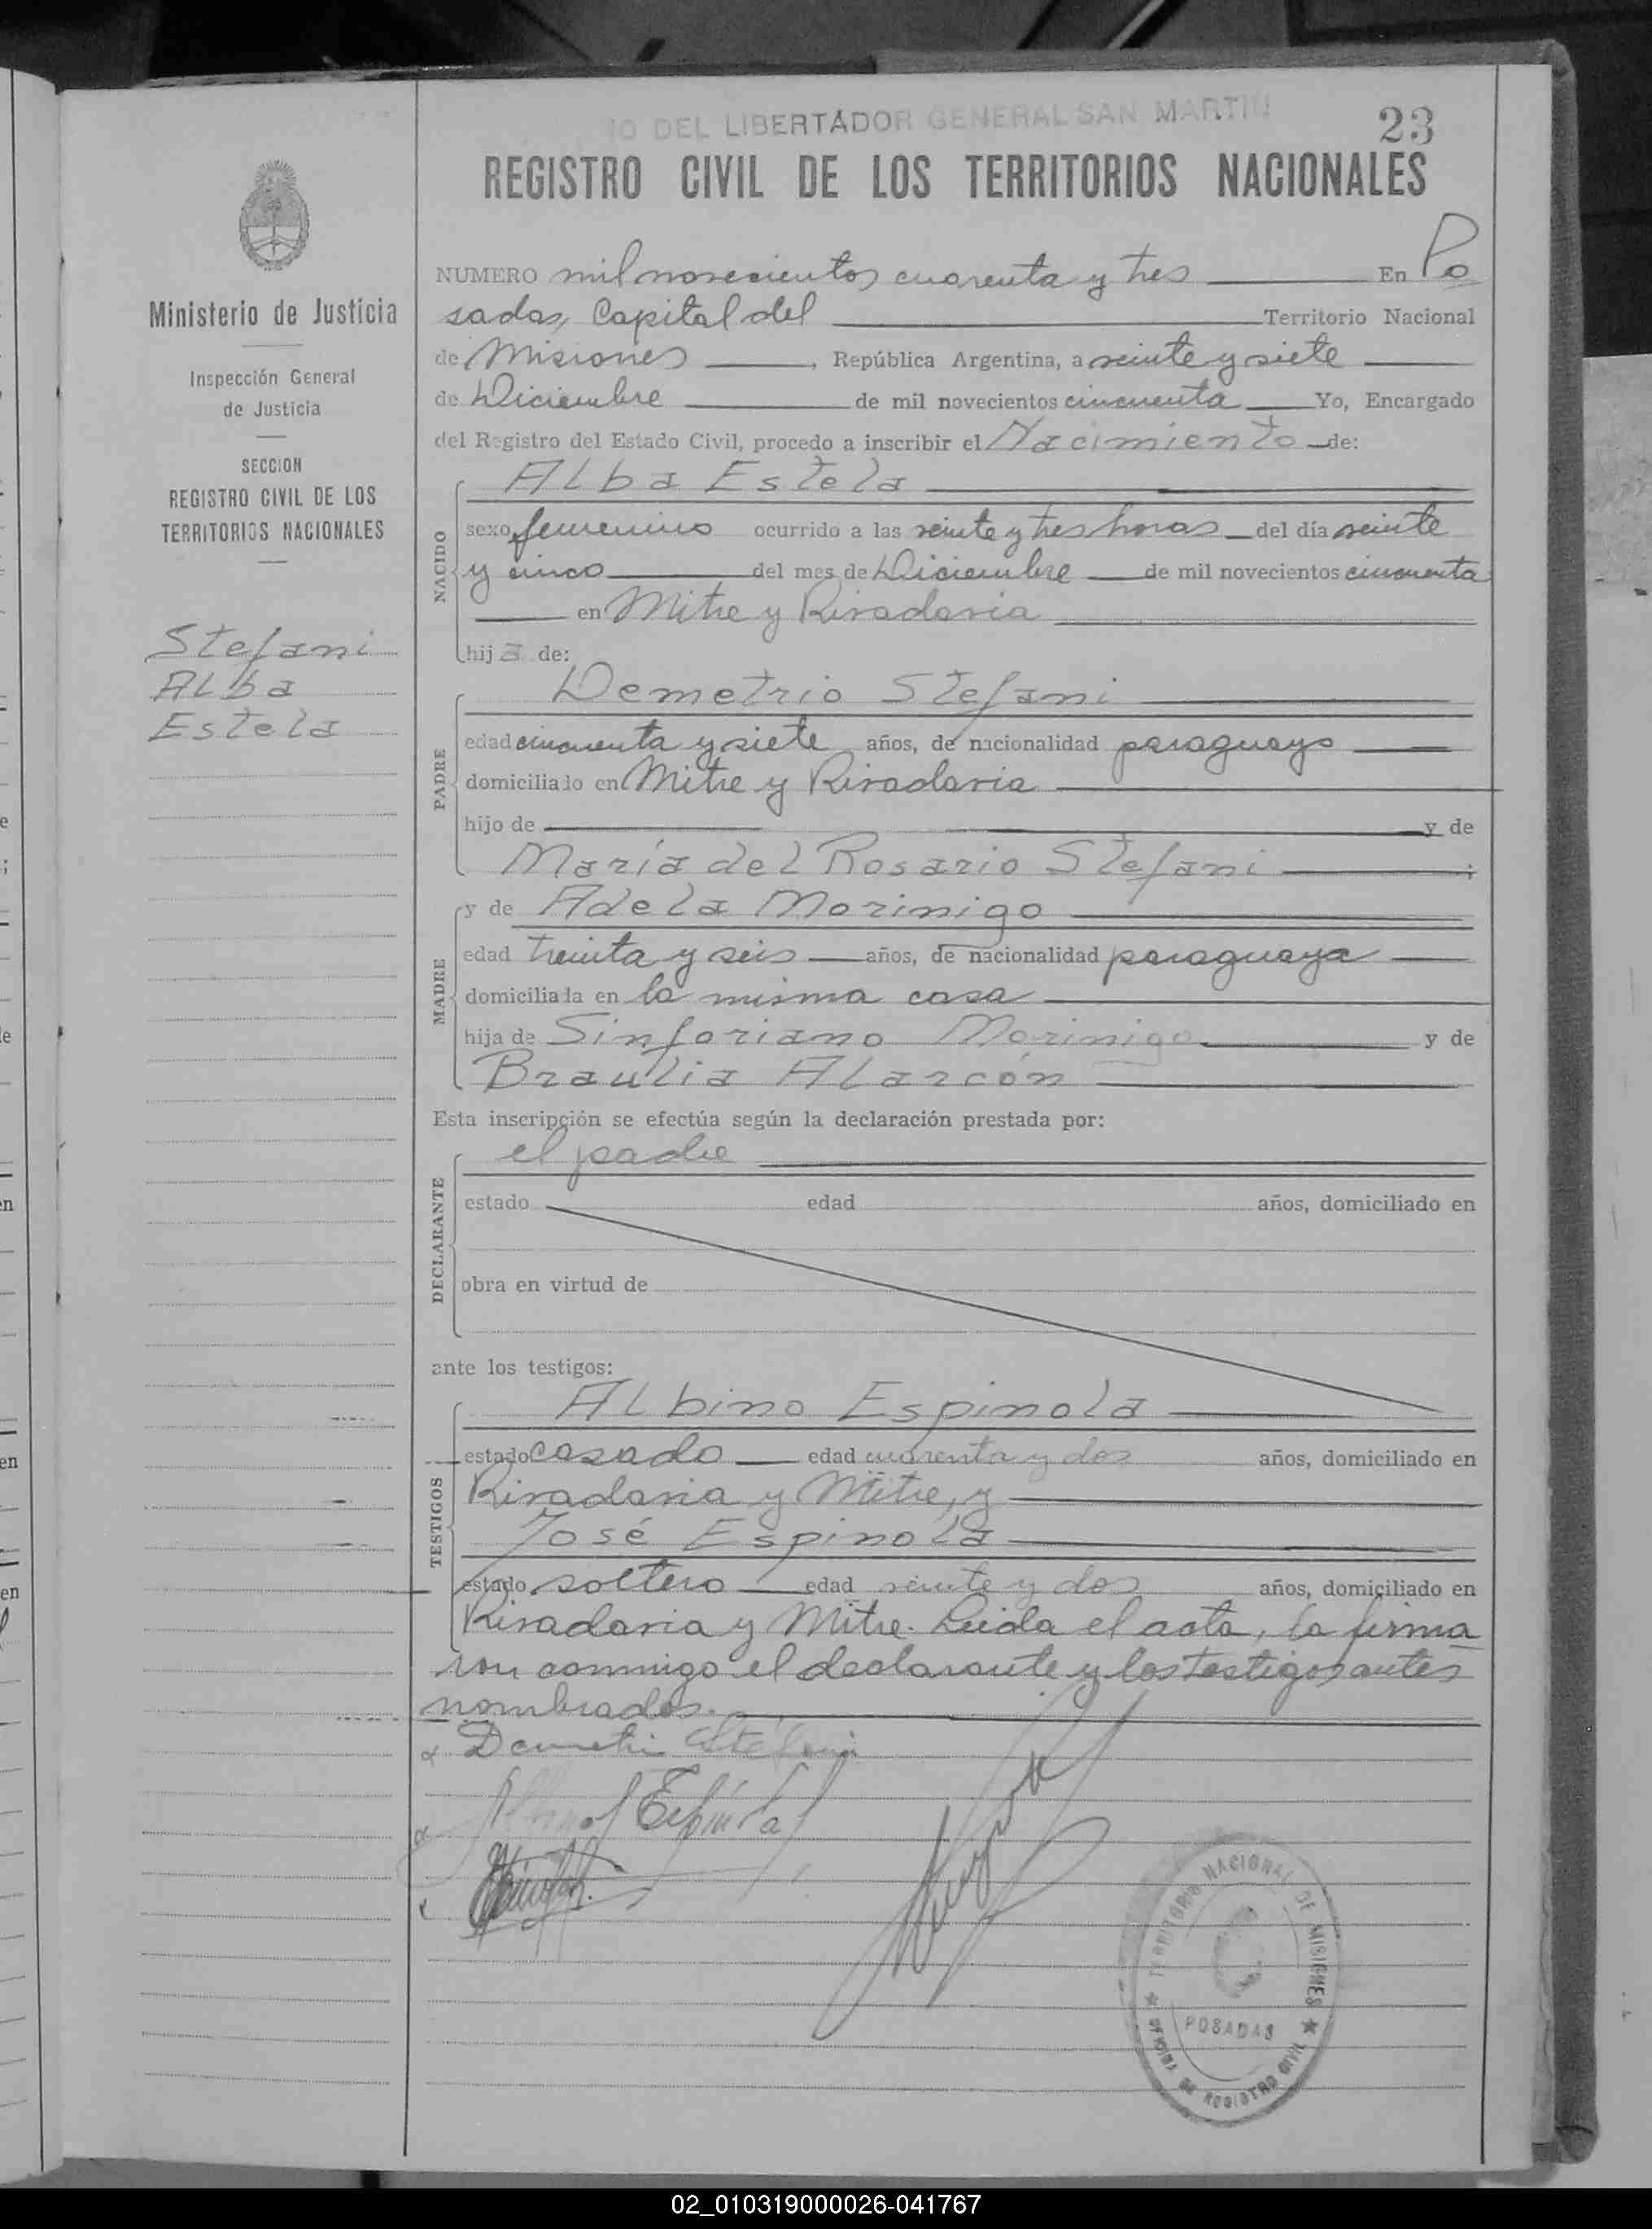 IO DEL LIBERTADOR GENERAL SAN MARTIN
23
REGISTRO CIVIL DE LOS TERRITORIOS NACIONALES
Ministerio de Justicia
Inspección General
de Justicia
SECCION
REGISTRO CIVIL DE LOS
TERRITORIOS NACIONALES
Stefani
Alba
Estela
NUMERO mil novecientos cuarenta y tres En Po
sadas, Capital del Territorio Nacional
de Misiones, República Argentina, a veinte y siete
de Diciembre de mil novecientos cincuenta Yo, Encargado
del Registro del Estado Civil, procedo a inscribir el Nacimiento de:
NACIDO
Alba Estela
sexo femenino ocurrido a las veinte y tres horas del día veinte
y cinco del mes de Diciembre de mil novecientos cincuenta
en Mitre y Rivadavia
hija de:
PADRE
Demetrio Stefani
edad cincuenta y siete años, de nacionalidad paraguayo
domiciliado en Mitre y Rivadavia
hijo de y de
María del Rosario Stefani ;
MADRE
y de Adela Morinigo
edad treinta y seis años, de nacionalidad paraguaya
domiciliada en la misma casa
hija de Sinforiano Morinigo y de
Braulia Alarcón
Esta inscripción se efectúa según la declaración prestada por:
DECLARANTE
el padre
estado edad años, domiciliado en
obra en virtud de
ante los testigos:
TESTIGOS
Albino Espinola
estado casado edad cuarenta y dos años, domiciliado en
Rivadavia y Mitre, y
José Espinola
estado soltero edad veinte y dos años, domiciliado en
Rivadavia y Mitre. Leída el acta, la firma
ron conmigo el declarante y los testigos antes
nombrados.
Demetri Stefani
TERRITORIO NACIONAL DE MISIONES
POSADAS
OFICINA DE REGISTRO CIVIL
02_010319000026-041767